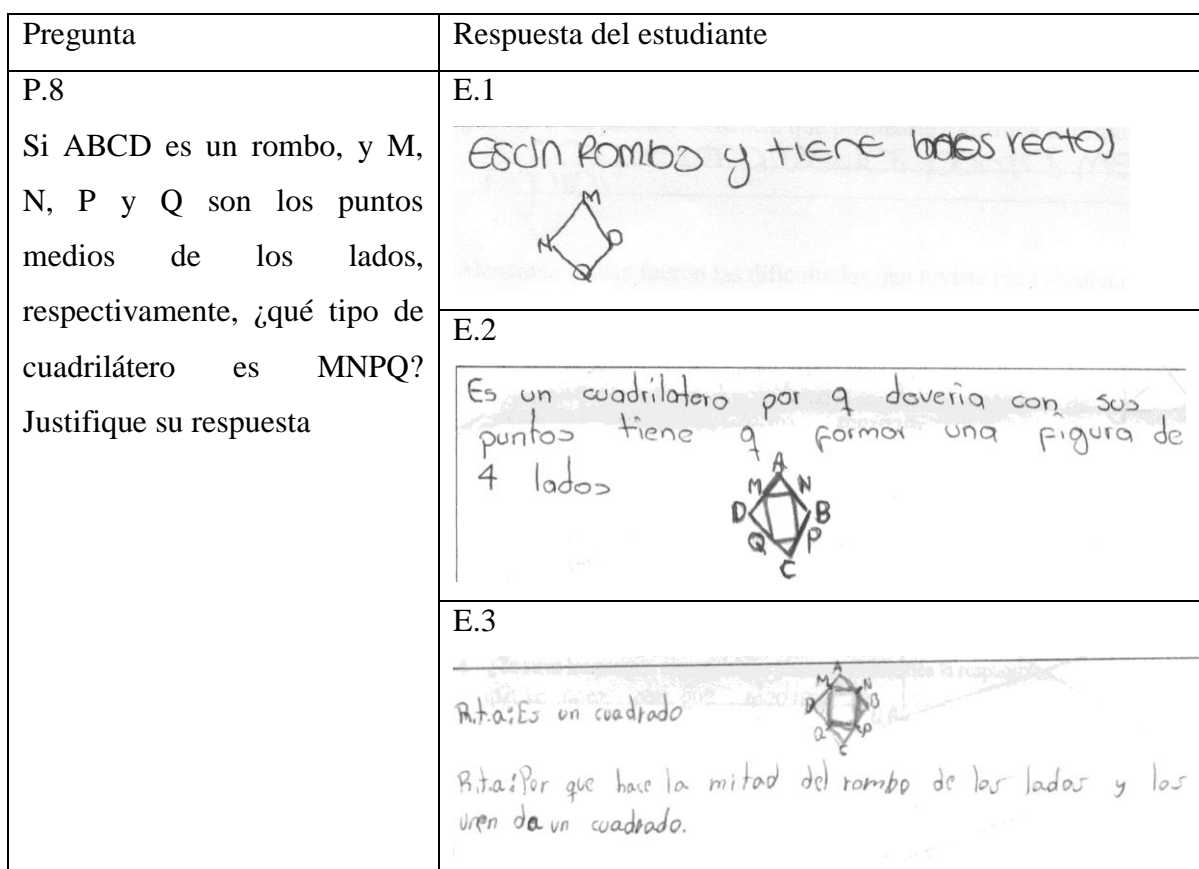 Pregunta
Respuesta del estudiante
P.8
Si ABCD es un rombo, y M,
N, P y Q son los puntos
medios de los lados,
respectivamente, ¿qué tipo de
cuadrilátero es MNPQ?
Justifique su respuesta
E.1
rombo y tiene rectos
M
N
P
Q
E.2
Es un cuadrilatero por q daveria con sus
puntos tiene q formar una figura de
4 lados
A
M N
D B
Q P
C
E.3
A
M N
D B
Q P
C
R.t.a: Es un cuadrado
R.t.a: Por que hace la mitad del rombo de los lados y los
unen da un cuadrado.